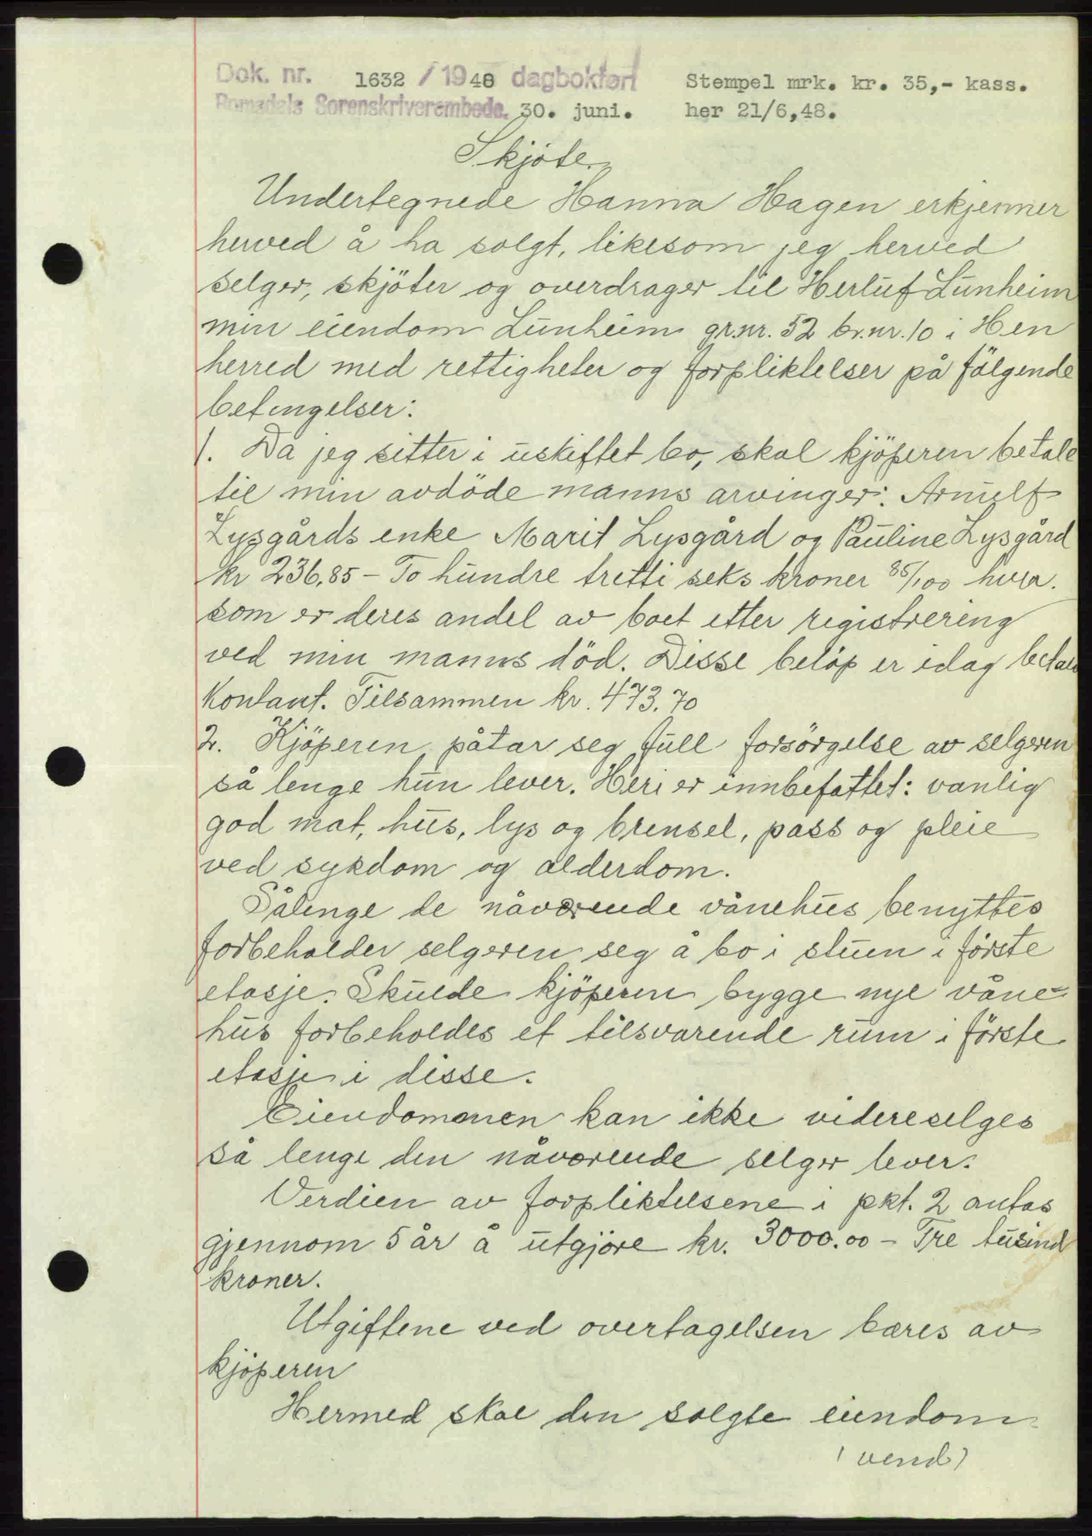 Dok. nr. 1632 / 1948 dagbokført Stempel mrk. kr. 35,- kass.
Romsdals Sorenskriverembede. 30. juni. her 21/6,48.
Skjöte.
Undertegnede Hanna Hagen erkjenner
herved å ha solgt, likesom jeg herved
selger, skjöter og overdrager til Herluf Lunheim
min eiendom Lunheim gr.nr. 52 br.nr. 10 i Hen
herred med rettigheter og forpliktelser på fölgende
betingelser:
1. Da jeg sitter i uskiftet bo, skal kjöperen betale
til min avdöde manns arvinger: Arnulf
Lysgårds enke Marit Lysgård og Pauline Lysgård
kr 236,85 - To hundre tretti seks kroner 85/100 hver.
som er deres andel av boet etter registrering
ved min manns död. Disse belöp er idag betalt
kontant. Tilsammen kr. 473.70
2. Kjöperen påtar seg full forsörgelse av selgeren
så lenge hun lever. Heri er innbefattet: vanlig
god mat, hus, lys og brensel, pass og pleie
ved sykdom og alderdom.
Sålenge de nåværende vånehus benyttes
forbeholder selgeren seg å bo i stuen i förste
etasje. Skulde kjöperen bygge nye våne-
hus forbeholdes et tilsvarende rum i förste
etasje i disse.
Eiendommen kan ikke videreselges
så lenge den nåværende selger lever.
Verdien av forpliktelsene i pkt. 2 antas
gjennom 5 år å utgjöre kr. 3000.00 - Tre tusind
kroner.
Utgiftene ved overtagelsen bæres av
kjöperen
Hermed skal den solgte eiendom
(vend)